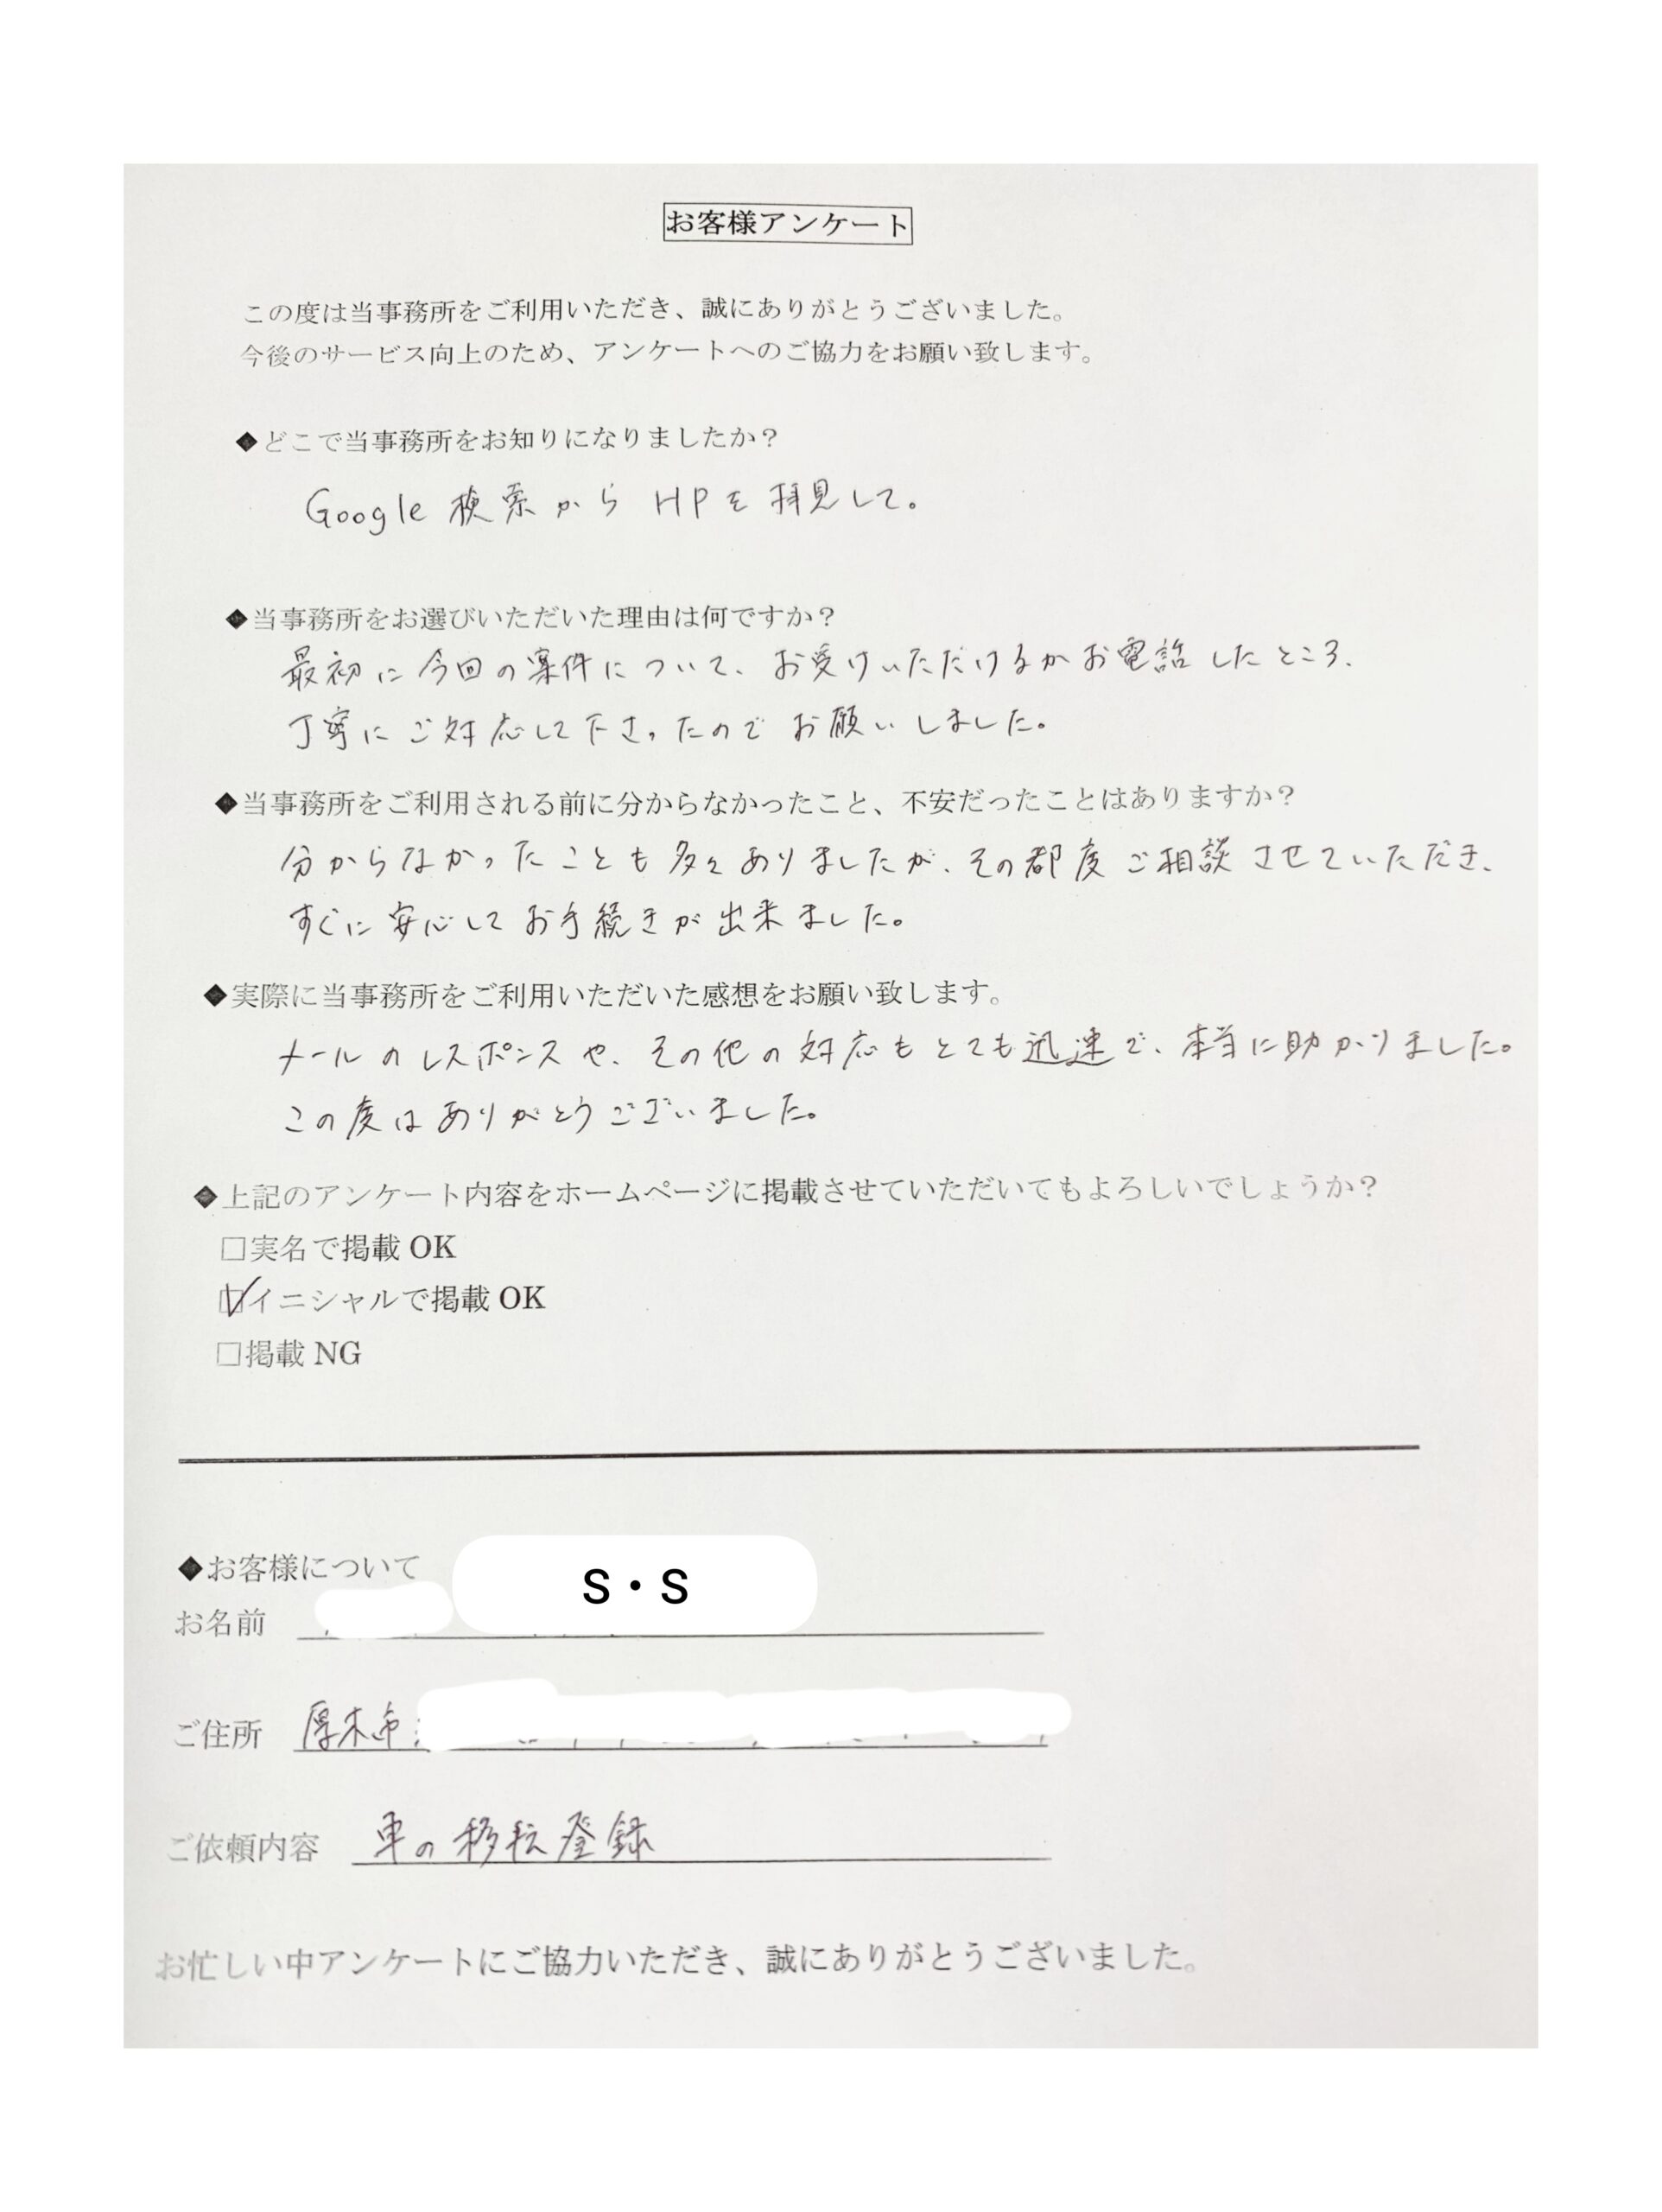 お客様アンケート
この度は当事務所をご利用いただき、誠にありがとうございました。
今後のサービス向上のため、アンケートへのご協力をお願い致します。
◆どこで当事務所をお知りになりましたか？
Google検索からHPを拝見して。
◆当事務所をお選びいただいた理由は何ですか？
最初に今回の案件について、お受けいただけるかお電話したところ、
丁寧にご対応して下さったのでお願いしました。
◆当事務所をご利用される前に分からなかったこと、不安だったことはありますか？
分からなかったことも多々ありましたが、その都度ご相談させていただき、
すぐに安心してお手続きが出来ました。
◆実際に当事務所をご利用いただいた感想をお願い致します。
メールのレスポンスや、その他の対応もとても迅速で、本当に助かりました。
この度はありがとうございました。
◆上記のアンケート内容をホームページに掲載させていただいてもよろしいでしょうか？
□実名で掲載OK
☑イニシャルで掲載OK
□掲載NG
◆お客様について
お名前 S・S
ご住所 厚木市
ご依頼内容 車の移転登録
お忙しい中アンケートにご協力いただき、誠にありがとうございました。